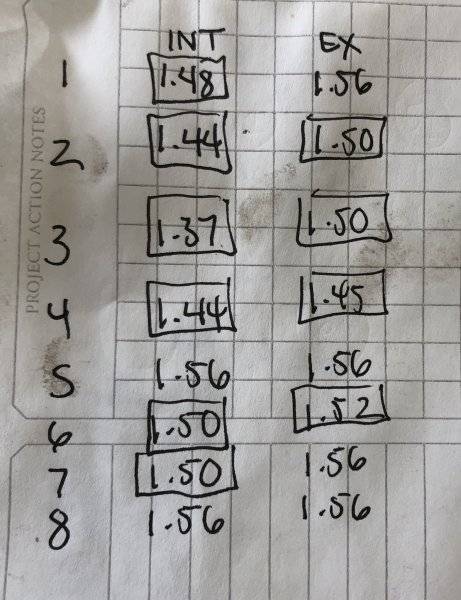 INT EX
1 1.48 1.56
2 1.44 1.50
3 1.37 1.50
4 1.44 1.45
5 1.56 1.56
6 1.50 1.52
7 1.50 1.56
8 1.56 1.56
PROJECT ACTION NOTES